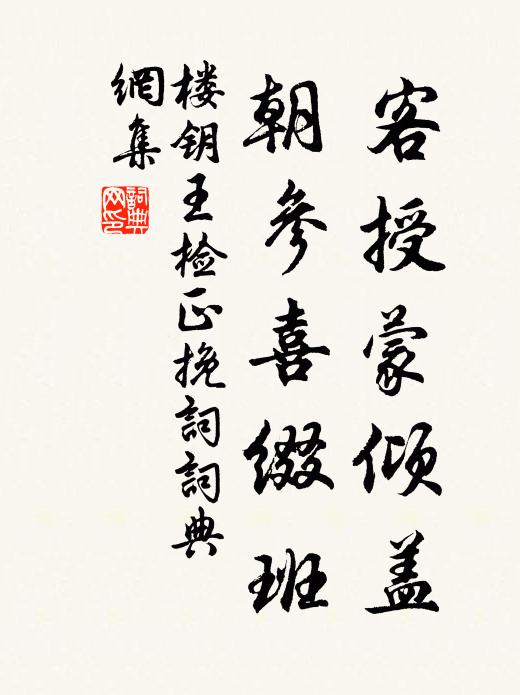 客授蒙倾盖
朝参喜缀班
楼钥王检正挽词詞典
網集
詞典网印